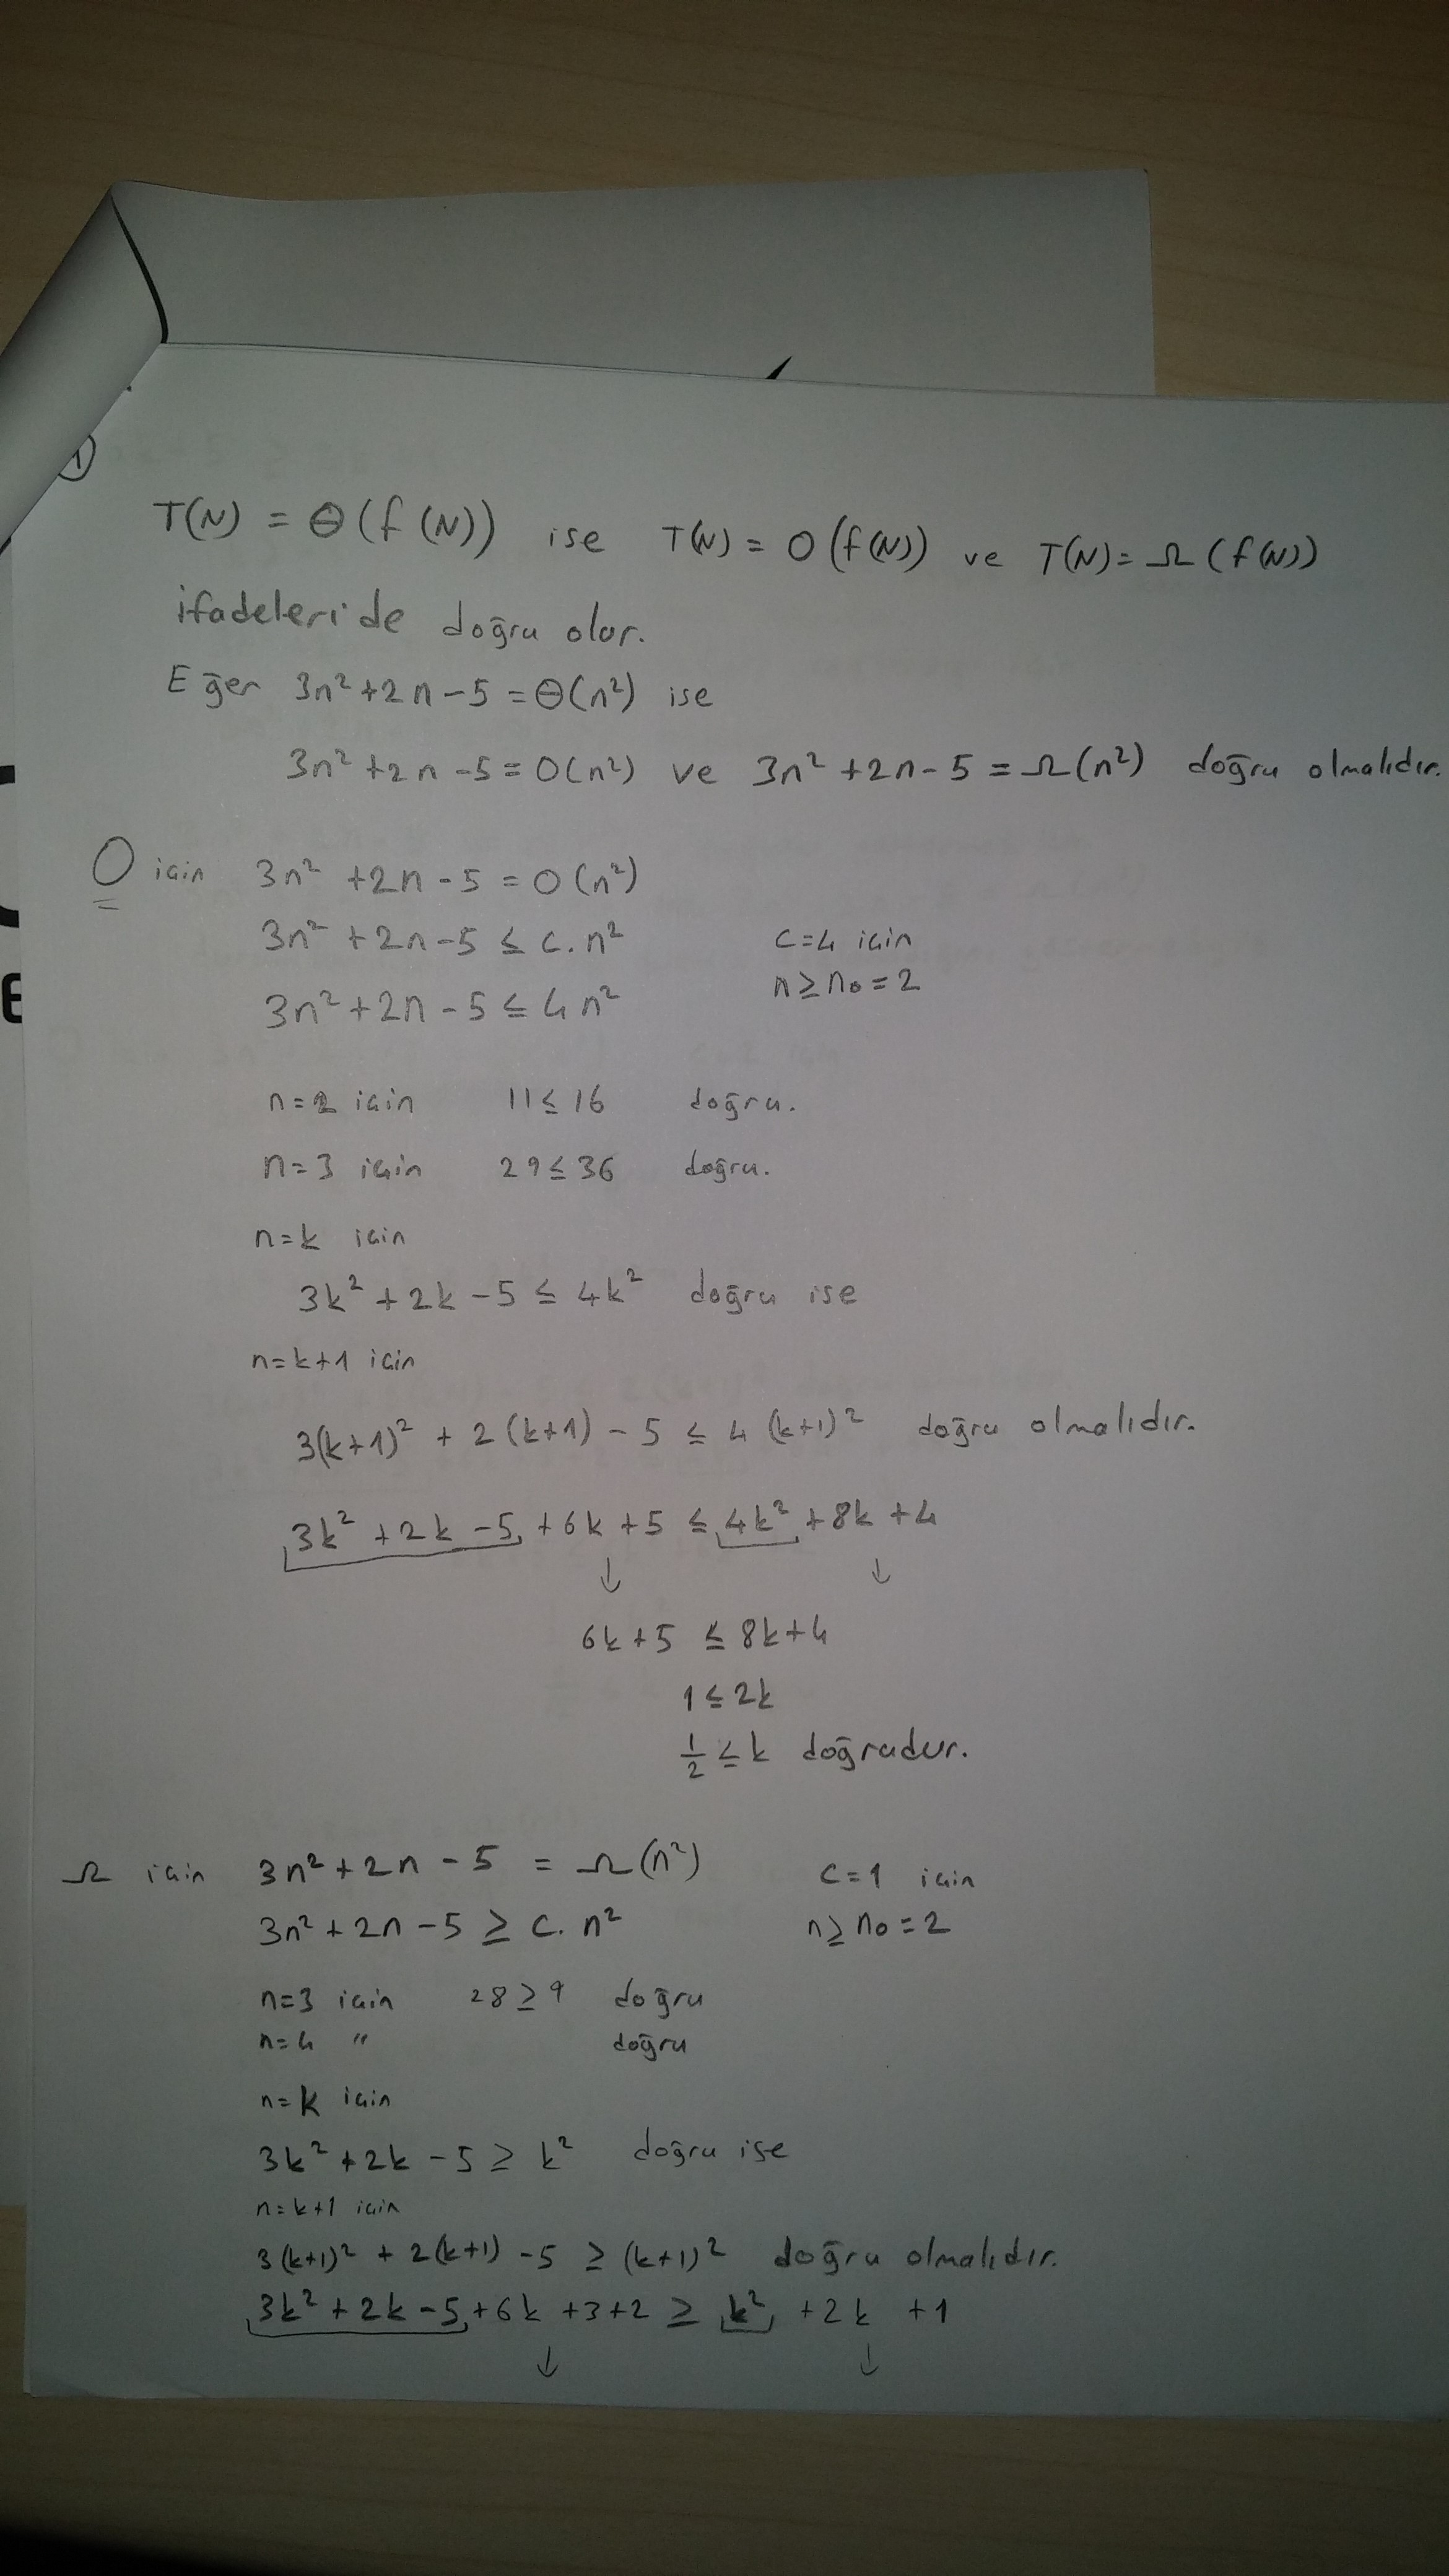 1
T(N) = Θ(f(N)) ise T(N) = O(f(N)) ve T(N) = Ω(f(N))
ifadeleri de doğru olur.
Eğer 3n² + 2n - 5 = Θ(n²) ise
3n² + 2n - 5 = O(n²) ve 3n² + 2n - 5 = Ω(n²) doğru olmalıdır.
O için 3n² + 2n - 5 = O(n²)
3n² + 2n - 5 ≤ c.n² c=4 için
3n² + 2n - 5 ≤ 4n² n ≥ n₀ = 2
n=2 için 11 ≤ 16 doğru.
n=3 için 29 ≤ 36 doğru.
n=k için
3k² + 2k - 5 ≤ 4k² doğru ise
n=k+1 için
3(k+1)² + 2(k+1) - 5 ≤ 4(k+1)² doğru olmalıdır.
3k² + 2k - 5 + 6k + 5 ≤ 4k² + 8k + 4
↓ ↓
6k + 5 ≤ 8k + 4
1 ≤ 2k
1/2 ≤ k doğrudur.
Ω için 3n² + 2n - 5 = Ω(n²) c=1 için
3n² + 2n - 5 ≥ c.n² n ≥ n₀ = 2
n=3 için 28 ≥ 9 doğru
n=4 " doğru
n=k için
3k² + 2k - 5 ≥ k² doğru ise
n=k+1 için
3(k+1)² + 2(k+1) - 5 ≥ (k+1)² doğru olmalıdır.
3k² + 2k - 5 + 6k + 3 + 2 ≥ k² + 2k + 1
↓ ↓